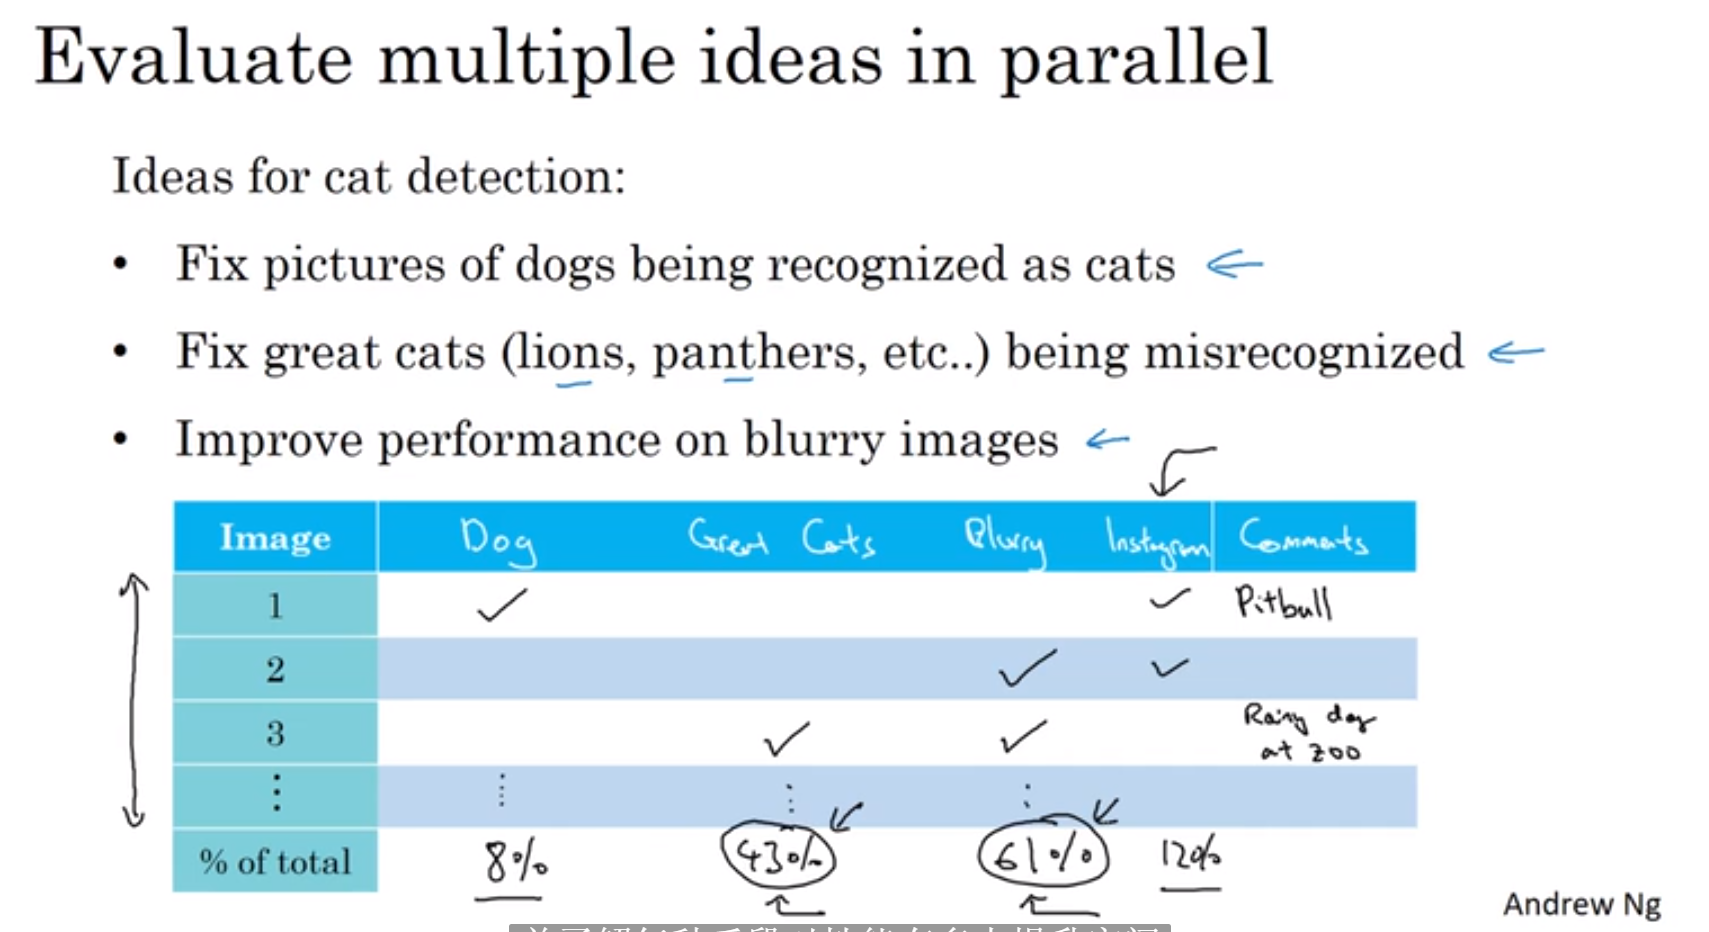 Evaluate multiple ideas in parallel
Ideas for cat detection:
• Fix pictures of dogs being recognized as cats
• Fix great cats (lions, panthers, etc..) being misrecognized
• Improve performance on blurry images
Image Dog Great Cats Blurry Instagram Comments
1 ✓ ✓ Pitball
2 ✓ ✓
3 ✓ ✓ Rainy day
at zoo
⋮ ⋮ ⋮ ⋮
% of total 8% 43% 61% 12%
Andrew Ng